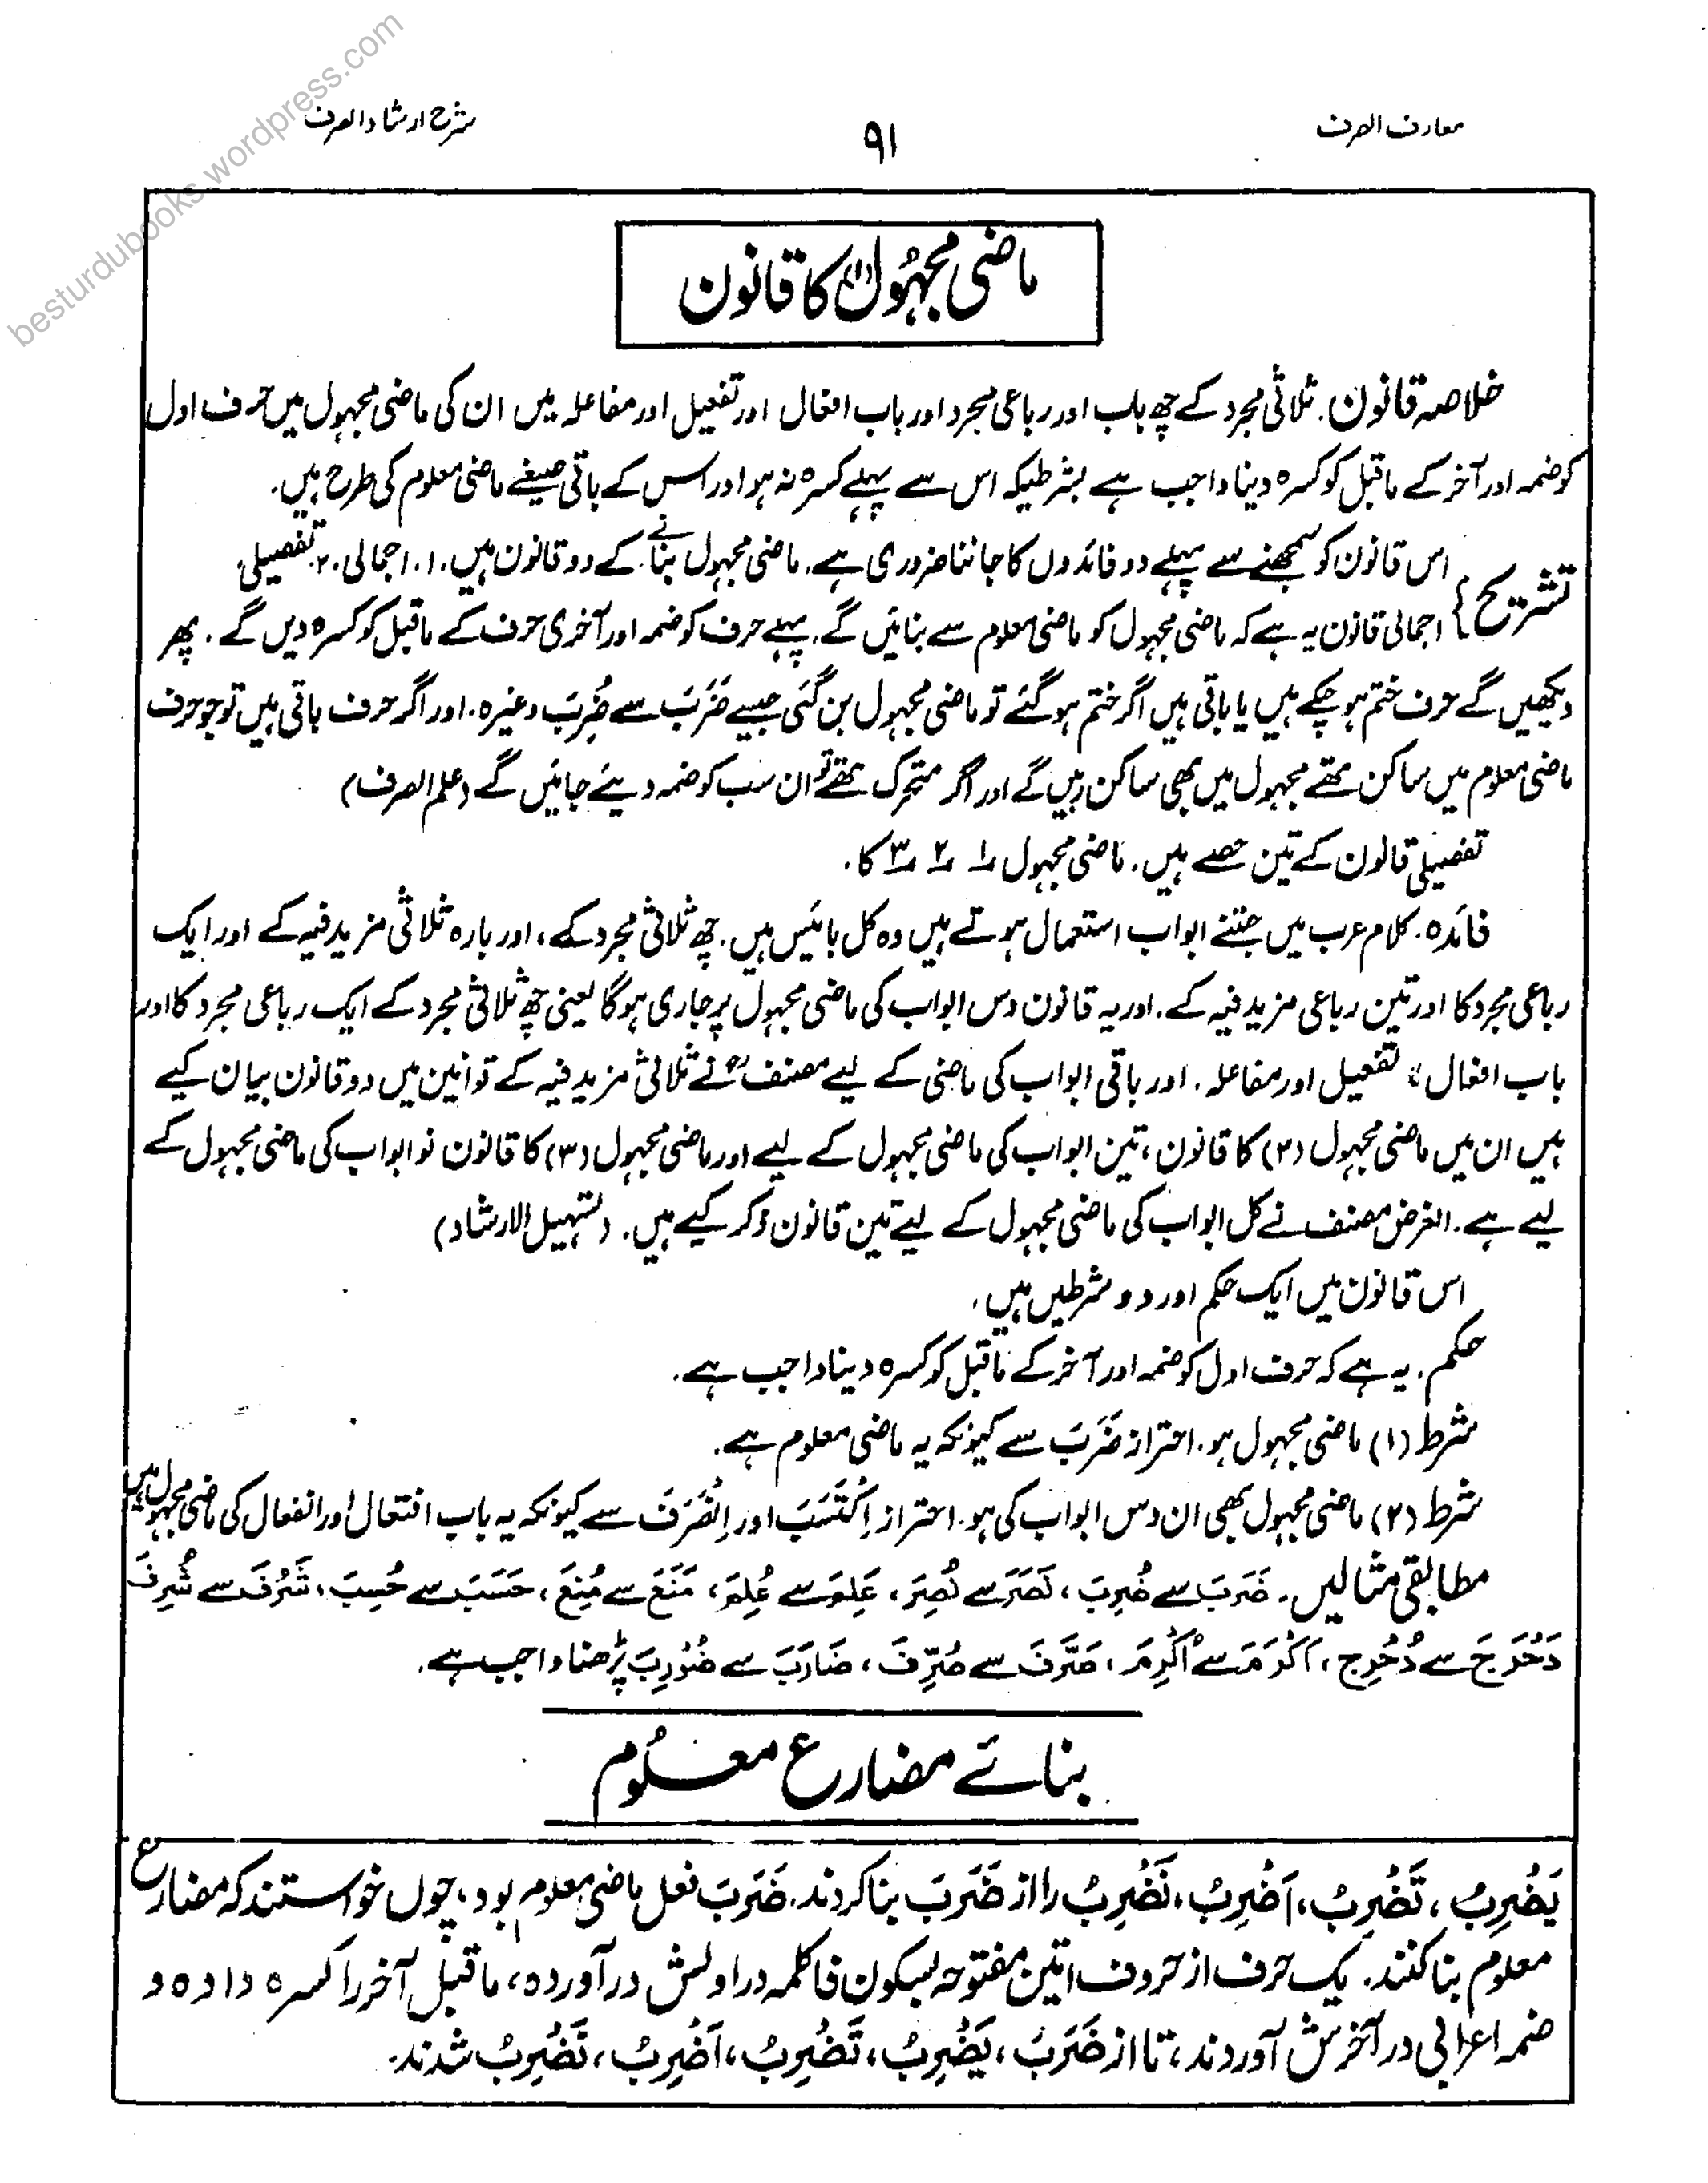 معارف الصرف
۹۱
شرح ارشاد الصرف
besturdubooks.wordpress.com
ماضی مجہُول (۱) کا قانون
خلاصہ قانون. ثلاثی مجرد کے چھ باب اور رباعی مجرد اور باب افعال اور تفعیل اور مفاعلہ میں ان کی ماضی مجہول میں حرف اول
کو ضمہ اور آخر کے ماقبل کو کسرہ دینا واجب ہے بشرطیکہ اس سے پہلے کسرہ نہ ہو اور اس کے باقی صیغے ماضی معلوم کی طرح ہیں.
تشریح} اس قانون کو سمجھنے سے پہلے دو فائدوں کا جاننا ضروری ہے. ماضی مجہول بنانے کے دو قانون ہیں. ۱. اجمالی. ۲. تفصیلی
اجمالی قانون یہ ہے کہ ماضی مجہول کو ماضی معلوم سے بنائیں گے. پہلے حرف کو ضمہ اور آخری حرف کے ماقبل کو کسرہ دیں گے. پھر
دیکھیں گے حرف ختم ہو چکے ہیں یا باقی ہیں اگر ختم ہو گئے تو ماضی مجہول بن گئی جیسے ضَرَبَ سے ضُرِبَ وغیرہ. اور اگر حرف باقی ہیں تو جو حرف
ماضی معلوم میں ساکن تھے مجہول میں بھی ساکن رہیں گے اور اگر متحرک تھے تو ان سب کو ضمہ دیئے جائیں گے (علم الصرف)
تفصیلی قانون کے تین حصے ہیں. ماضی مجہول ۱؎ ۲؎ ۳؎ کا.
فائدہ. کلام عرب میں جتنے ابواب استعمال ہوتے ہیں وہ کل بائیس ہیں. چھ ثلاثی مجرد کے، اور بارہ ثلاثی مزید فیہ کے اور ایک
رباعی مجرد کا اور تین رباعی مزید فیہ کے. اور یہ قانون دس ابواب کی ماضی مجہول پر جاری ہوگا یعنی چھ ثلاثی مجرد کے ایک رباعی مجرد کا اور
باب افعال، تفعیل اور مفاعلہ. اور باقی ابواب کی ماضی کے لیے مصنفؒ نے ثلاثی مزید فیہ کے قوانین میں دو قانون بیان کیے
ہیں ان میں ماضی مجہول (۲) کا قانون، تین ابواب کی ماضی مجہول کے لیے اور ماضی مجہول (۳) کا قانون نو ابواب کی ماضی مجہول کے
لیے ہے. الغرض مصنف نے کل ابواب کی ماضی مجہول کے لیے تین قانون ذکر کیے ہیں. (تسہیل الارشاد)
اس قانون میں ایک حکم اور دو شرطیں ہیں.
حکم. یہ ہے کہ حرف اول کو ضمہ اور آخر کے ماقبل کو کسرہ دینا واجب ہے.
شرط (۱) ماضی مجہول ہو. احتراز ضَرَبَ سے کیونکہ یہ ماضی معلوم ہے.
شرط (۲) ماضی مجہول بھی ان دس ابواب کی ہو. احتراز اِکْتَسَبَ اور اِنْصَرَفَ سے کیونکہ یہ باب افتعال اور انفعال کی ماضی مجہول ہیں
مطابقی مثالیں. ضَرَبَ سے ضُرِبَ، نَصَرَ سے نُصِرَ، عَلِمَ سے عُلِمَ، مَنَعَ سے مُنِعَ، حَسَبَ سے حُسِبَ، شَرُفَ سے شُرِفَ
دَحْرَجَ سے دُحْرِج، اَکْرَمَ سے اُکْرِمَ، صَرَّفَ سے صُرِّفَ، ضَارَبَ سے ضُوْرِبَ پڑھنا واجب ہے.
بنائے مضارع معلُوم
یَضْرِبُ، تَضْرِبُ، اَضْرِبُ، نَضْرِبُ را از ضَرَبَ بنا کردند. ضَرَبَ فعل ماضی معلوم بود، چوں خواستند کہ مضارع
معلوم بنا کنند. یک حرف از حروف اتین مفتوحہ بسکون فا کلمہ در اولش در آوردہ، ماقبل آخر را کسرہ دادہ و
ضمہ اعرابی در آخرش آوردند، تا از ضَرَبَ، یَضْرِبُ، تَضْرِبُ، اَضْرِبُ، نَضْرِبُ شدند.